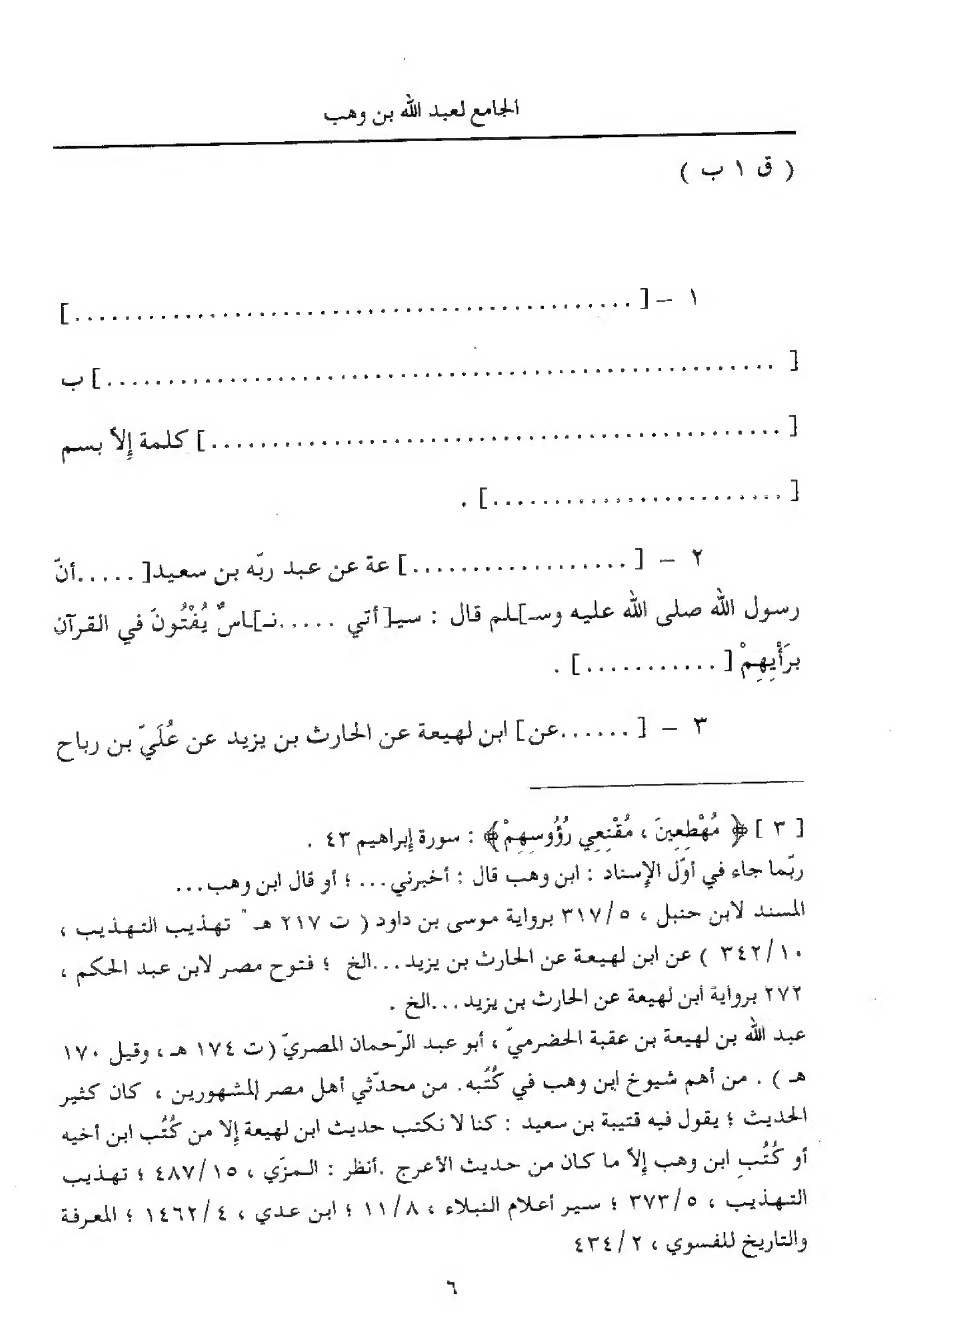 الجامع لعبد الله بن وهب
( ق ١ ب )
١ - [............................................]
[ .....................................................] ب
[ ..............................................] كلمة إِلاّ بسم
[ ........................] .
٢ - [ ..................] عة عن عبد ربّه بن سعيد[ .....أنّ
رسول الله صلى الله عليه وسـ]ـلم قال : سيـ[أتي .....نـ]ـاسٌ يُفْتُونَ في القرآن
برَأْيِهِمْ [ ...........] .
٣ - [ ......عن] ابن لهيعة عن الحارث بن يزيد عن عُلَيّ بن رباح
[ ٣ ] ﴿ مُهْطِعِينَ ، مُقْنِعِي رُؤُوسِهِمْ﴾ : سورة إبراهيم ٤٣ .
ربّما جاء في أوّل الإسناد : ابن وهب قال : أخبرني... ؛ أو قال ابن وهب...
المسند لابن حنبل ، ٣١٧/٥ برواية موسى بن داود ( ت ٢١٧ هـ ˝ تهذيب التهذيب ،
٣٤٢/١٠ ) عن ابن لهيعة عن الحارث بن يزيد...الخ ؛ فتوح مصر لابن عبد الحكم ،
٢٧٢ برواية ابن لهيعة عن الحارث بن يزيد...الخ .
عبد الله بن لهيعة بن عقبة الحضرميّ ، أبو عبد الرّحمان المصريّ (ت ١٧٤ هـ ، وقيل ١٧٠
هـ ) . من أهم شيوخ ابن وهب في كُتُبه. من محدّثي أهل مصر المشهورين ، كان كثير
الحديث ؛ يقول فيه قتيبة بن سعيد : كنا لا نكتب حديث ابن لهيعة إلا من كُتُب ابن أخيه
أو كُتُبِ ابن وهب إلاّ ما كان من حديث الأعرج .أنظر : المزّي ، ٤٨٧/١٥ ؛ تهذيب
التهذيب ، ٣٧٣/٥ ؛ سير أعلام النبلاء ، ١١/٨ ؛ ابن عدي ، ١٤٦٢/٤ ؛ المعرفة
والتاريخ للفسوي ، ٤٣٤/٢
٦